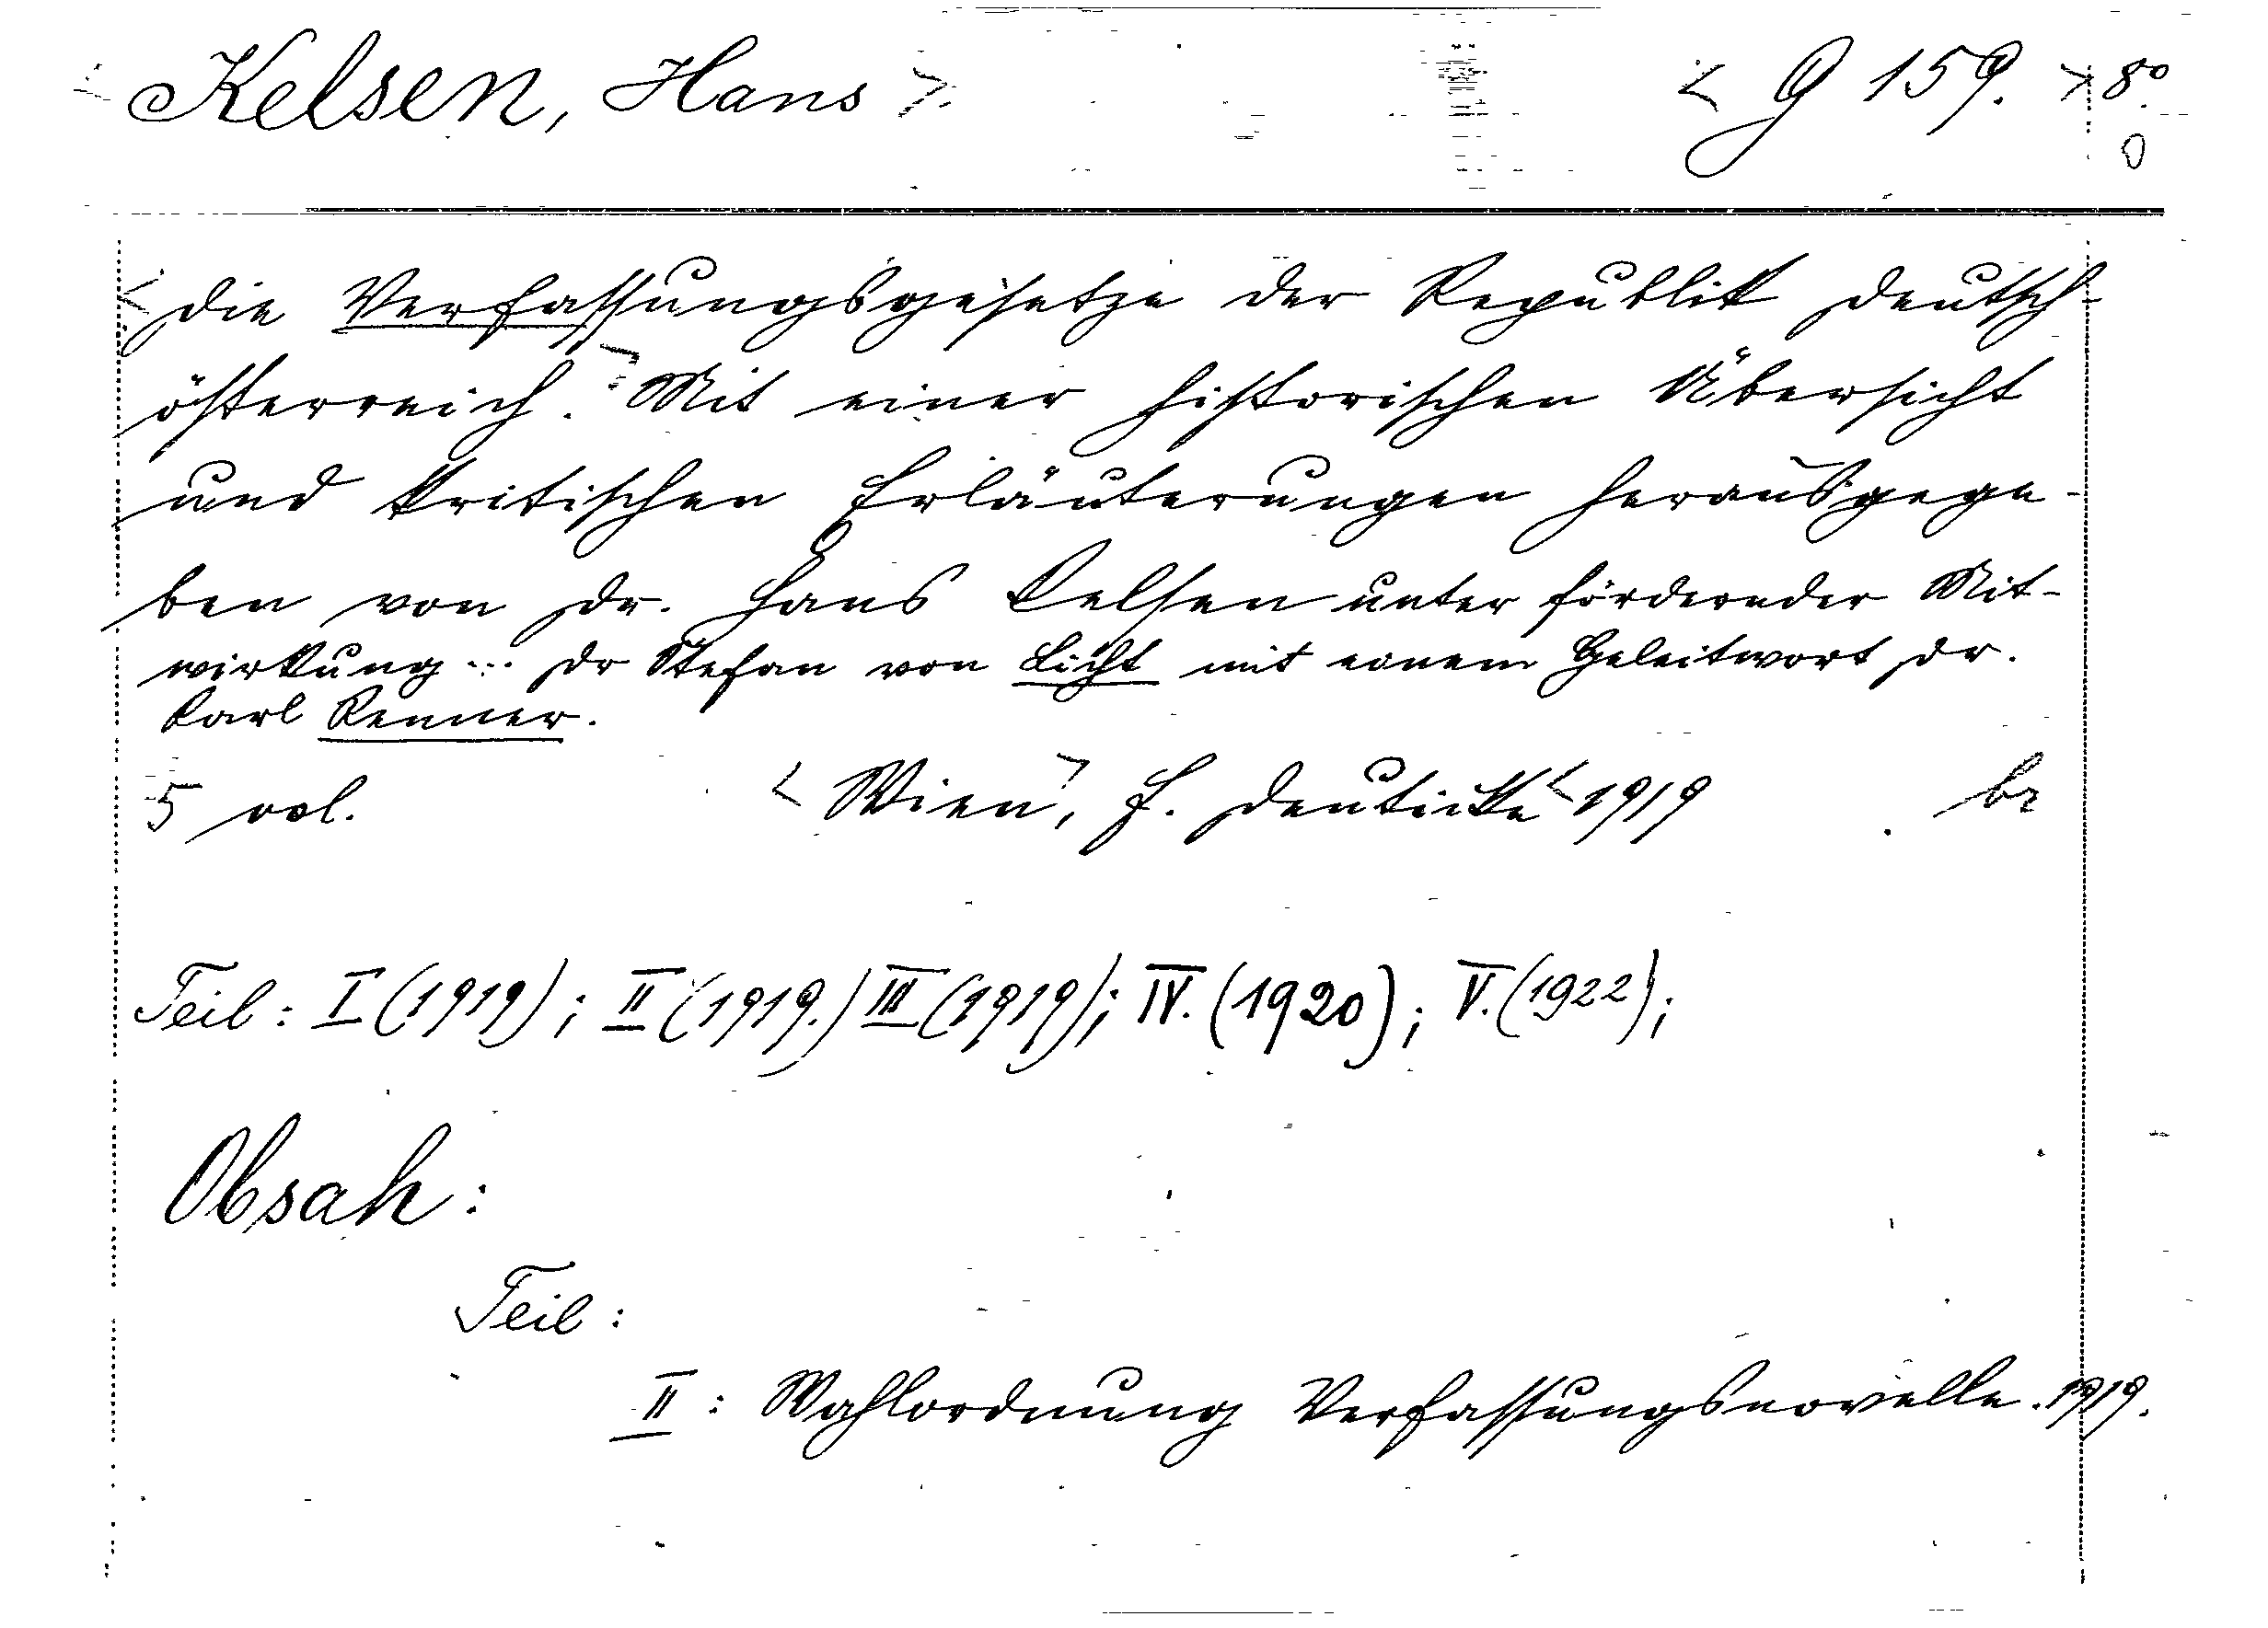 < Kelsen, Hans > < G 159. > 8°
0
< Die Verfassungsgesetze der Republik Deutsch-
österreich. > Mit einer historischen Übersicht
und kritischen Erläuterungen herausgege-
ben von Dr. Hans Kelsen unter fördernder Mit-
wirkung ... Dr Stefan von Licht mit einem Geleitwort Dr.
Karl Renner.
5 vol. < Wien >, F. Deuticke < 1919 br
Teil: I (1919); II (1919.) III (1919); IV. (1920); V. (1922);
Obsah:
Teil:
II: Wahlordnung Verfassungsnovelle. 1919.